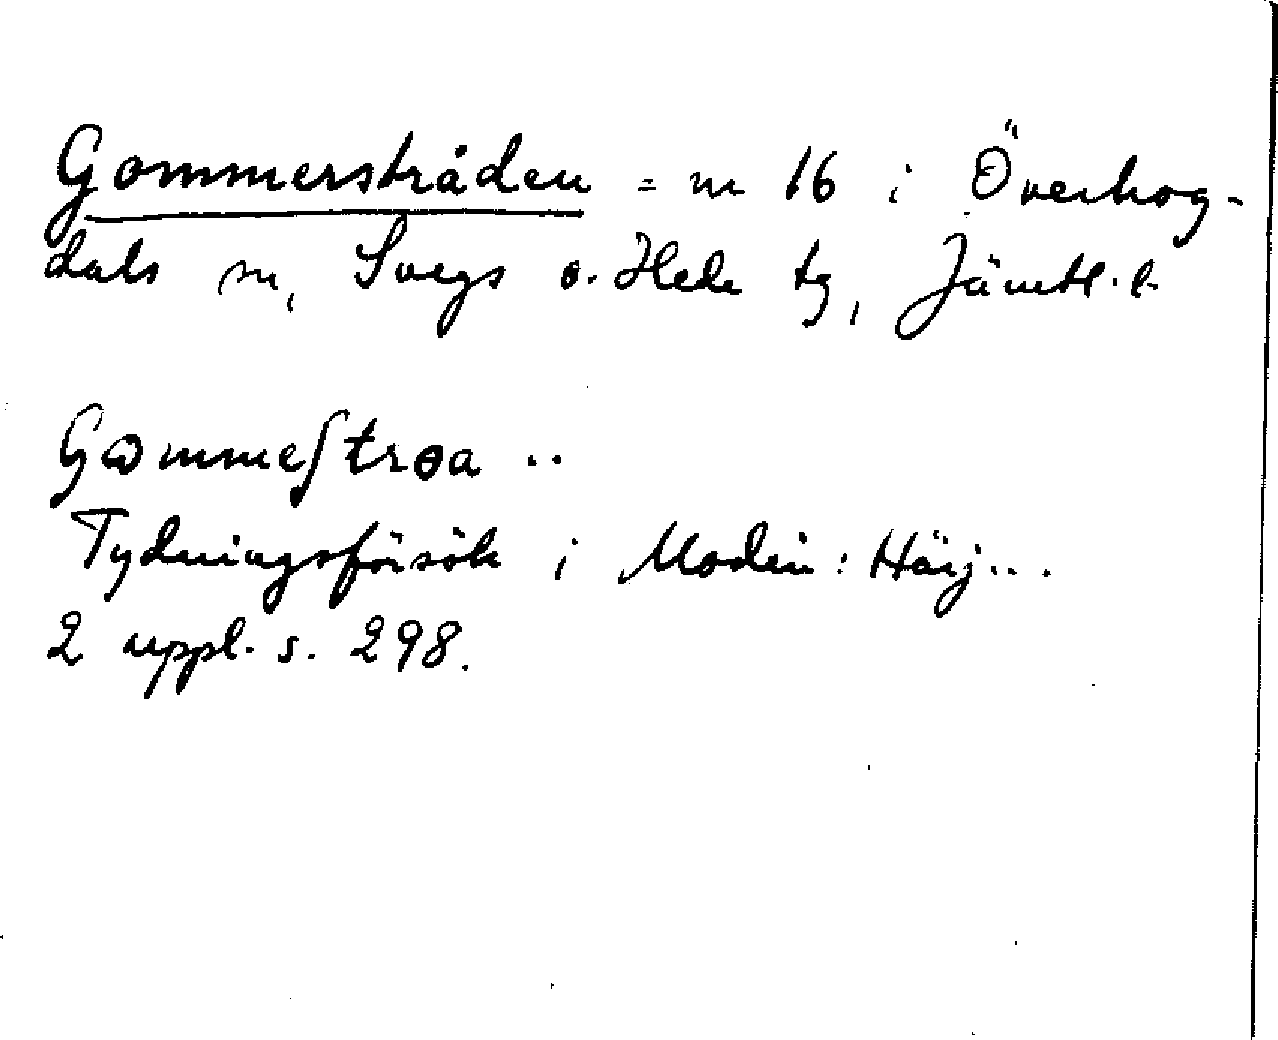 Gommerstråden = nr 16 i Överhog-
dals sn, Svegs o. Hede tg, Jämtl. l.
Gɷmmeʃtrɵa ..
Tydningsförsök i Modin: Härj...
2 uppl. s. 298.